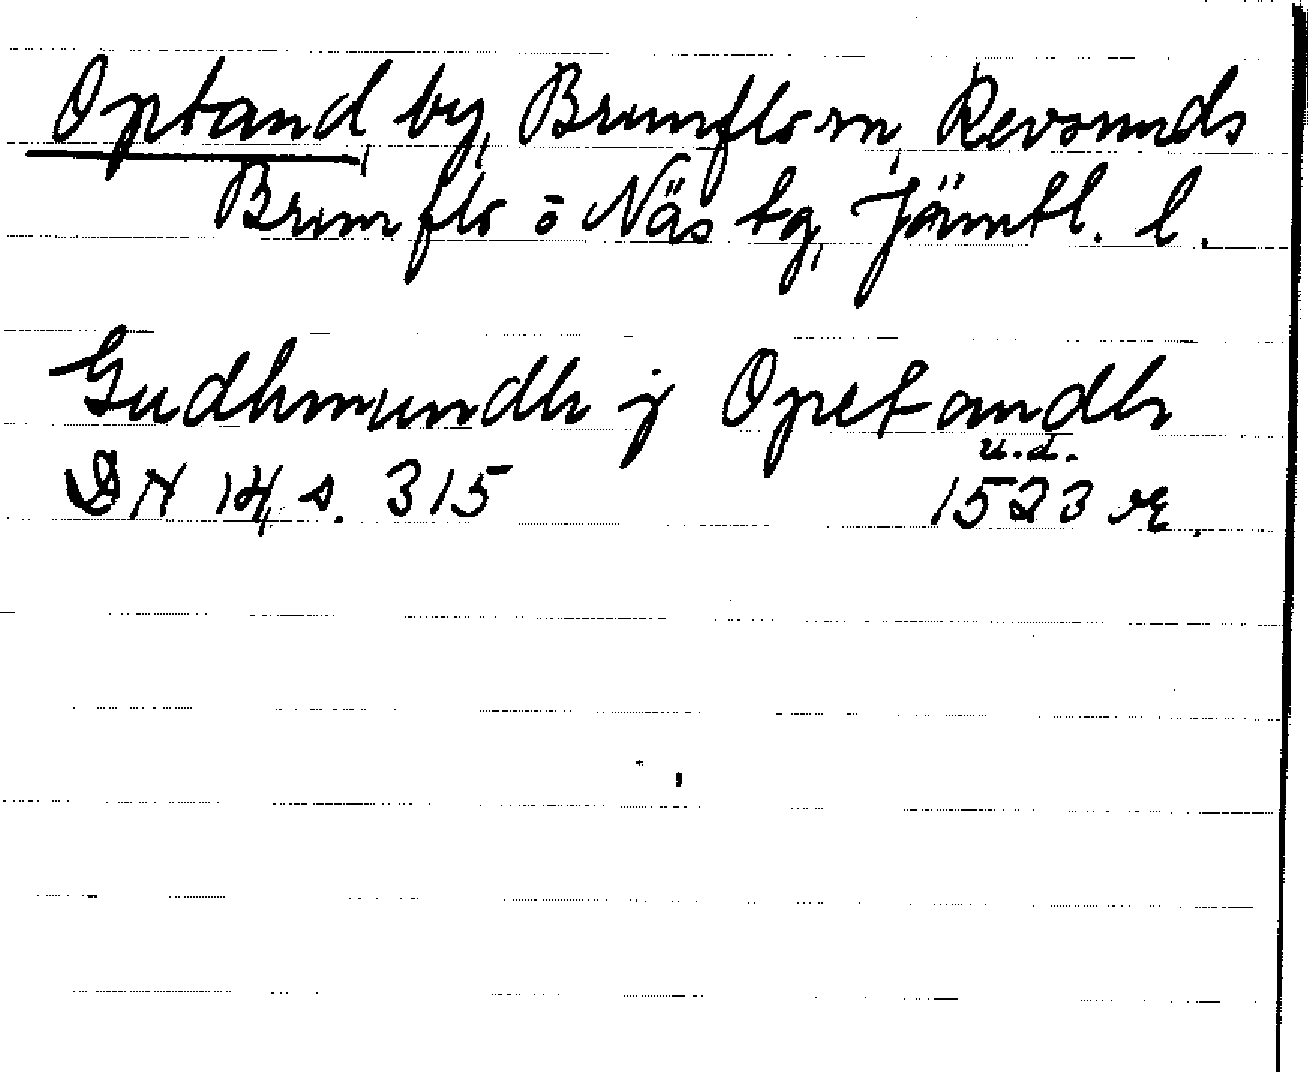 Optand, by, Brunflo sn, Revsunds
Brunflo o Näs tg, Jämtl. l.
Gudhmundh j Opetandh
u.d.
DN 14, s. 315 1523